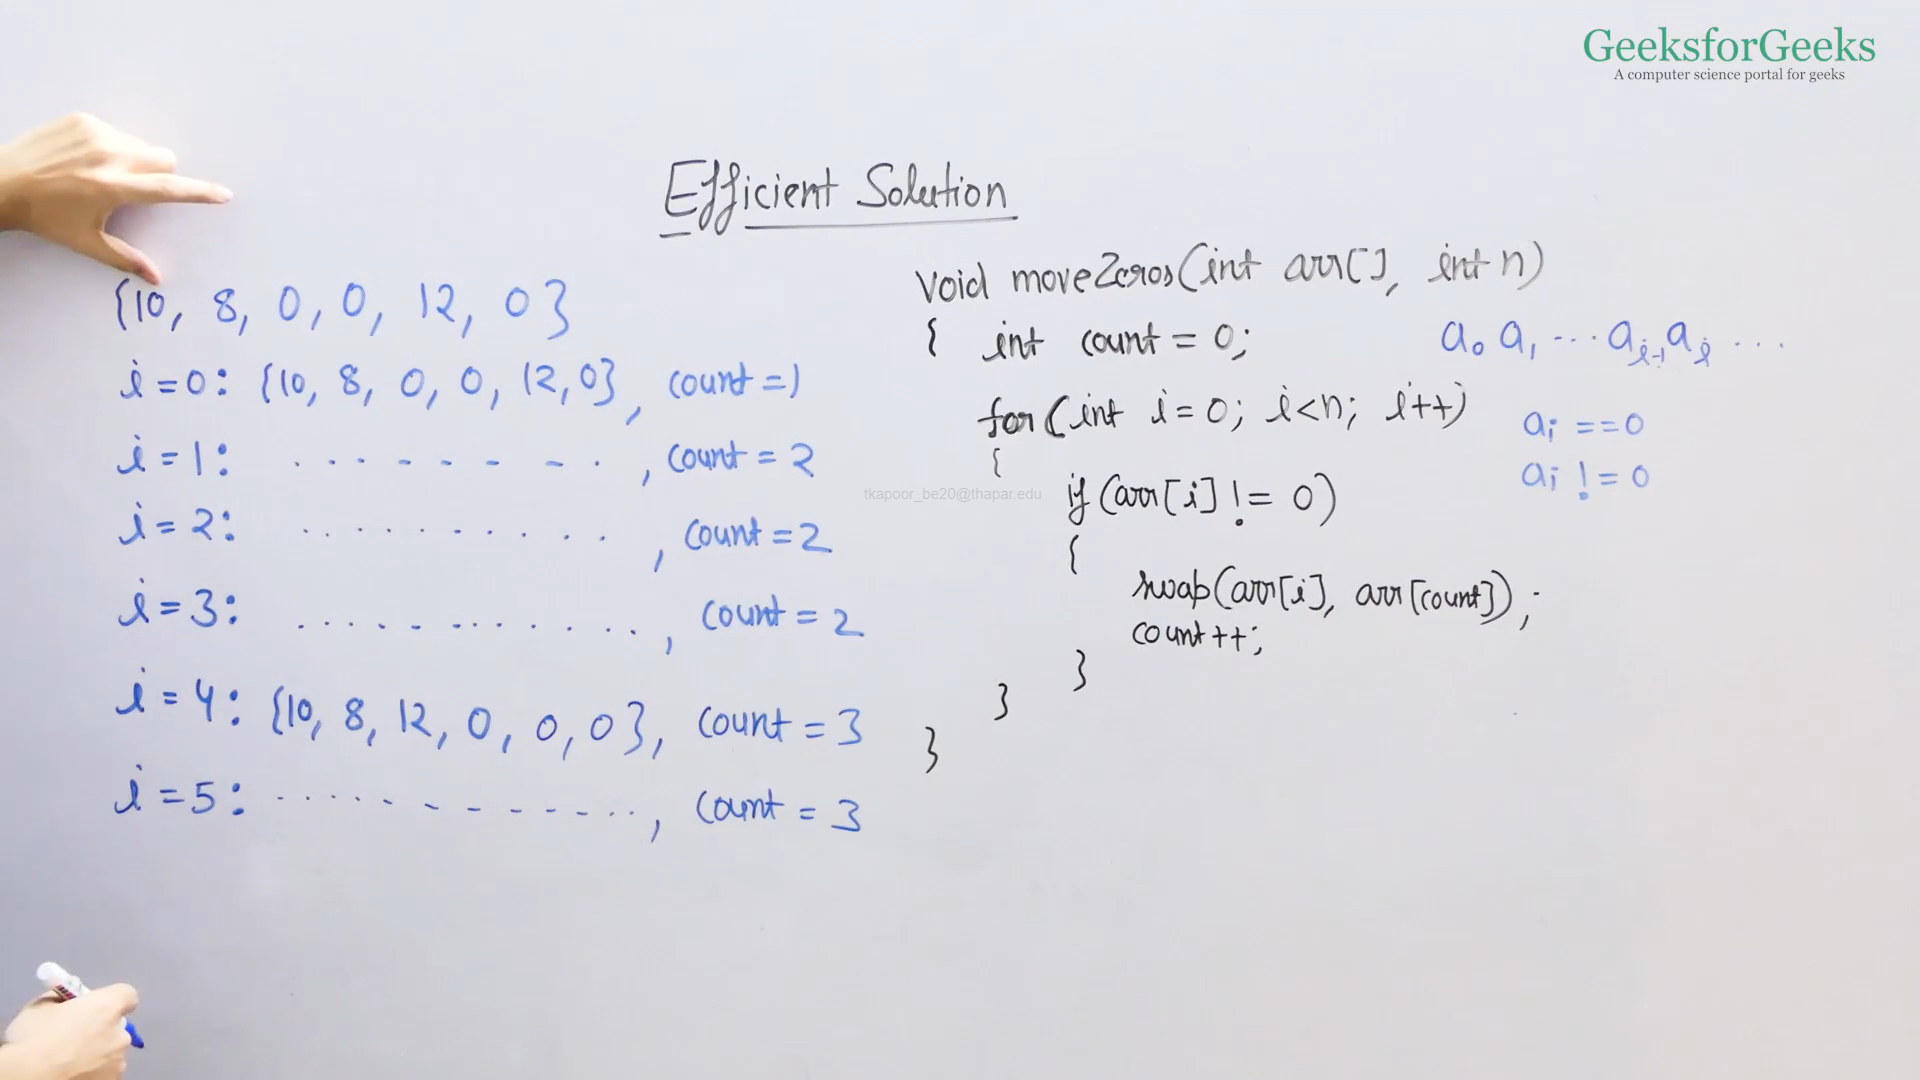 GeeksforGeeks
A computer science portal for geeks
Efficient Solution
{10, 8, 0, 0, 12, 0}
i=0: {10, 8, 0, 0, 12, 0}, count=1
i=1: .........., count=2
i=2: .........., count=2
i=3: .........., count=2
i=4: {10, 8, 12, 0, 0, 0}, count=3
i=5: .........., count=3
void moveZeros(int arr[], int n)
{ int count = 0;
for(int i=0; i<n; i++)
{
if(arr[i] != 0)
{
swap(arr[i], arr[count]);
count++;
}
}
}
a0 a1 ... ai-1 ai ...
ai ==0
ai != 0
tkapoor_be20@thapar.edu